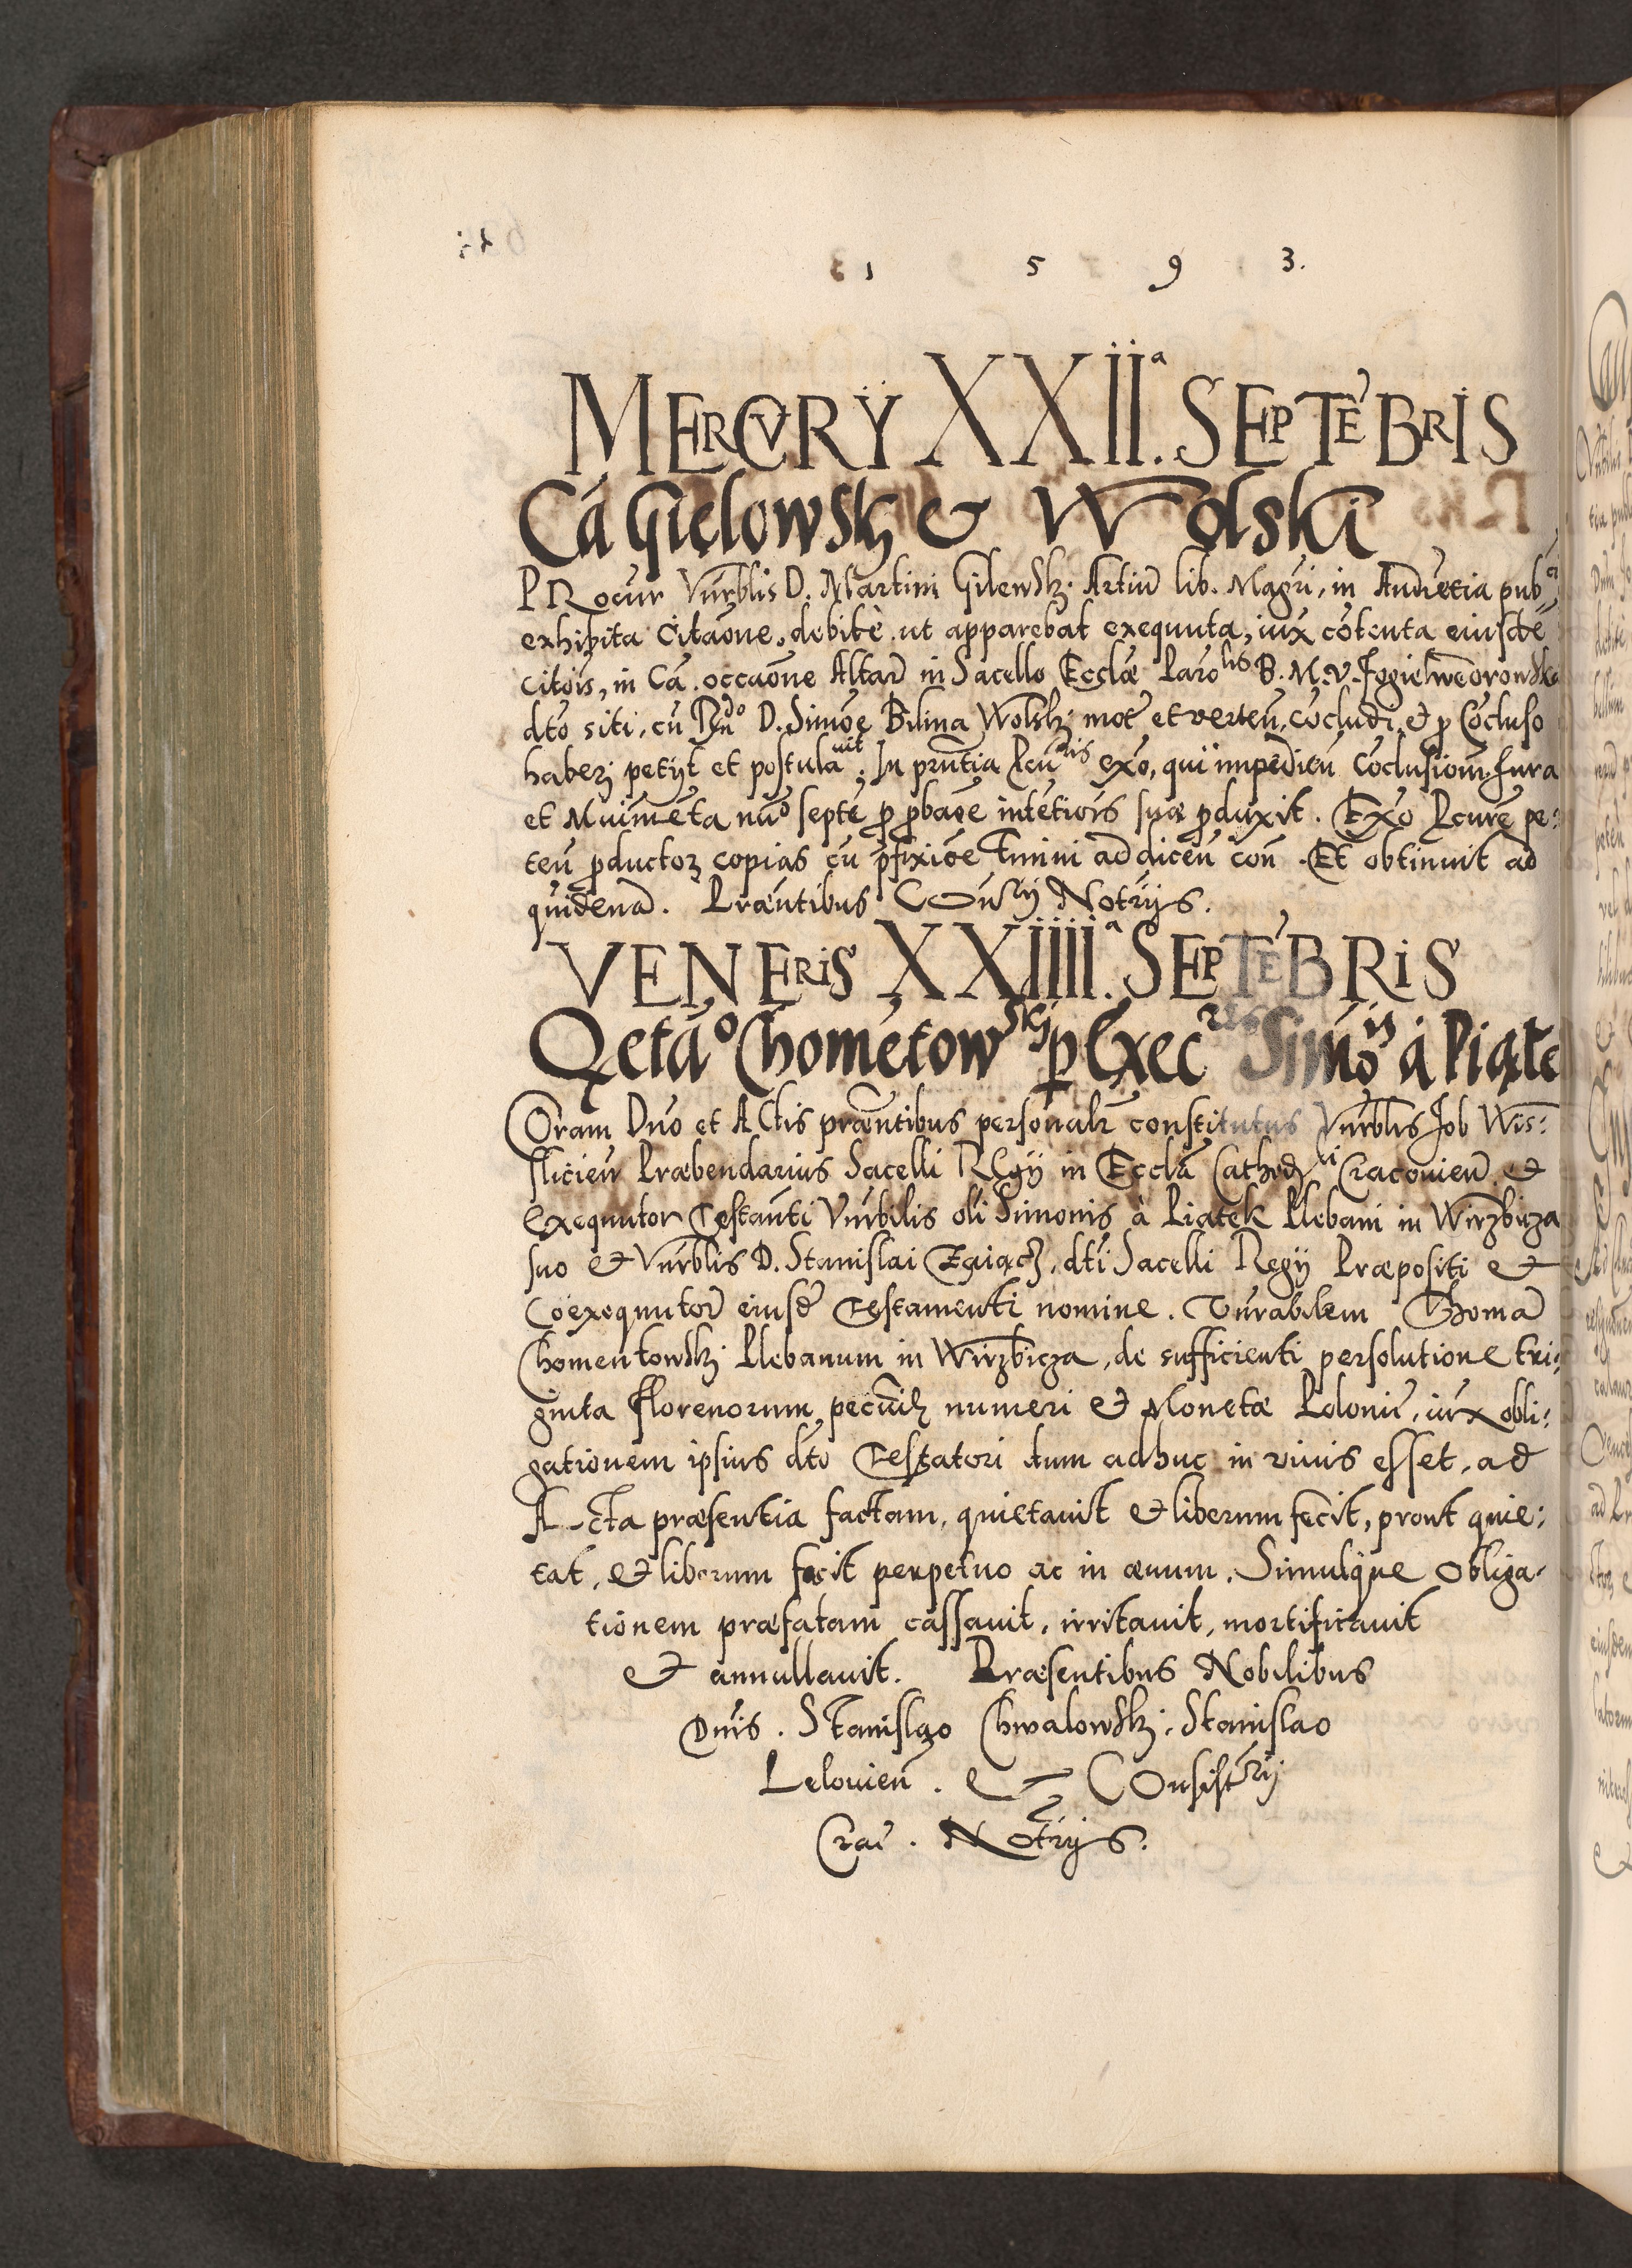 1 5 9 3.
MERCVRY XXII.ª SEPTE͂BRIS
Cã Gielowsk & Wolski
PRocur Vnrblis D. Martini Gilewsk. Artiũ lib. Magri, in Audietia pub
exhibita Citaone, debitè ut apparebat exequuta, iux cõtenta eiusde
citois, in Cã. occaone Altar in Sacello Ecclæ B. M. V.
dto siti, cũ D. Simoe Bilina Wolsk, mot et verteñ, cõcludi, et ꝓ Cõcluso
haberj petijt et postulauit. In prntia exo, qui impedieñ Coclusionm Jura
et Muimẽta nũo septẽ ꝓ ꝓbaoe intẽtiois suæ ꝓduxit. Exo pe:
teñ ꝓductoꝝ copias cũ p̃fixioe Tmini ad diceñ coñ. Et obtinuit ad
quidenã. Præñtibus Notrijs.
VENERIS XXIIII.ª SEPTE͂BRIS
Qetão Chomẽtowskj ꝑ Exec Simõis à Piąte
Coram Dno et ACtis præntibus personalr constitutus Vnrblis Job Wis:
slicieñ Præbendarius Sacelli REgij in Ecclã Cathedrli Cracouieñ. et
Exequutor Testanti Vnrbilis oli Simonis à Piątek Plebani in Wirzbicza
suo & Vnrblis D. Stanislai Zaiącz, dti Sacelli Regij Præpositi &
Coexequutor eiusd̃ Testamenti nomine. Vnrabilem Thomã
Chomentowsk. Plebanum in Wirzbicza, de sufficienti persolutione tri:
ginta florenorum, numeri & Monetæ Polonic, iux obli:
gationem ipsius dto Testatori dum adhuc in viuis esset, ad
ACta præsentia factam, quietauit & liberum fecit, prout quie:
tat, & liberum facit perpetuo ac in æuum. Simulque obliga-
tionem præfatam cassauit, irritauit, mortificauit
& annullauit. Præsentibus Nobilibus
Dnis. Stanislao Chwalowsk, Stanislao
Lelouień. & COnsistrij
Crac. Notrijs.